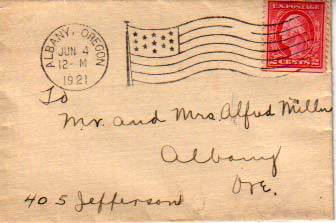 ALBANY, OREGON
JUN 4
12-M
1921
U.S. POSTAGE
2 CENTS 2
To
Mr. and Mrs. Alfred Miller
Albany
Ore.
405 Jefferson